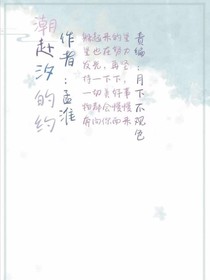 潮赴汐的约
作者:孟淮
来的星
星也在努力
发光,再坚
持一下下,
一切美好事
物都会慢慢
奔向你而来
责编:月下不观色